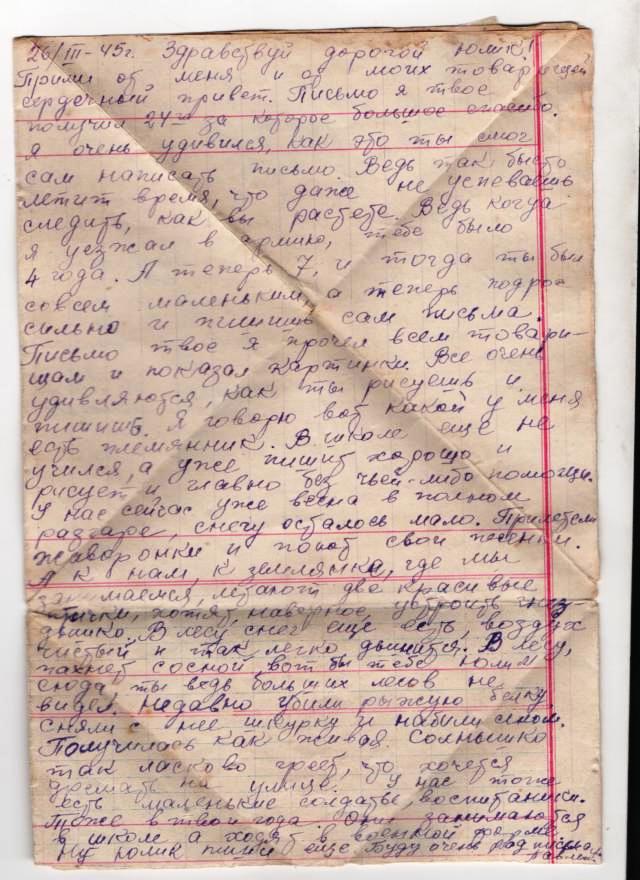 26/III-45г. Здравствуй дорогой Юлик!
Прими от меня и от моих товарищей
сердечный привет. Письмо я твое
получил 24го за которое большое спасибо.
Я очень удивился, как это ты смог
сам написать письмо. Ведь так быстро
летит время, что даже не успеваешь
следить, как вы растете. Ведь когда
я уезжал в армию, тебе было
4 года. А теперь 7, и тогда ты был
совсем маленьким, а теперь подрос
сильно и пишишь сам письма.
Письмо твое я прочел всем товари-
щам и показал картинки. Все очень
удивляются, как ты рисуешь и
пишишь. Я говорю вот какой у меня
есть племянник. В школе еще не
учился, а уже пишит хорошо и
рисует и главно без чьей-либо помощи.
У нас сейчас уже весна в полном
разгаре, снегу осталось мало. Прилетели
жаворонки и поют свои песенки.
А к нам, к землянке, где мы
занимаемся, летают две красивые
птички, хотят, наверное, устроить гнез-
дышко. В лесу снег еще есть, воздух
чистый и так легко дышится. В лесу,
пахнет сосной, вот бы тебе Юлик
сюда ты ведь больших лесов не
видел. Недавно убили рыжую белку,
сняли с нее шкурку и набили сеном.
Получилась как живая. Солнышко
так ласково греет, что хочется
дремать на улице. У нас тоже
есть маленькие солдаты, воспитаники.
Тоже в твои года. Они занимаются
в школе а ходят в военной форме.
Ну Юлик пиши еще. Буду очень рад письма.